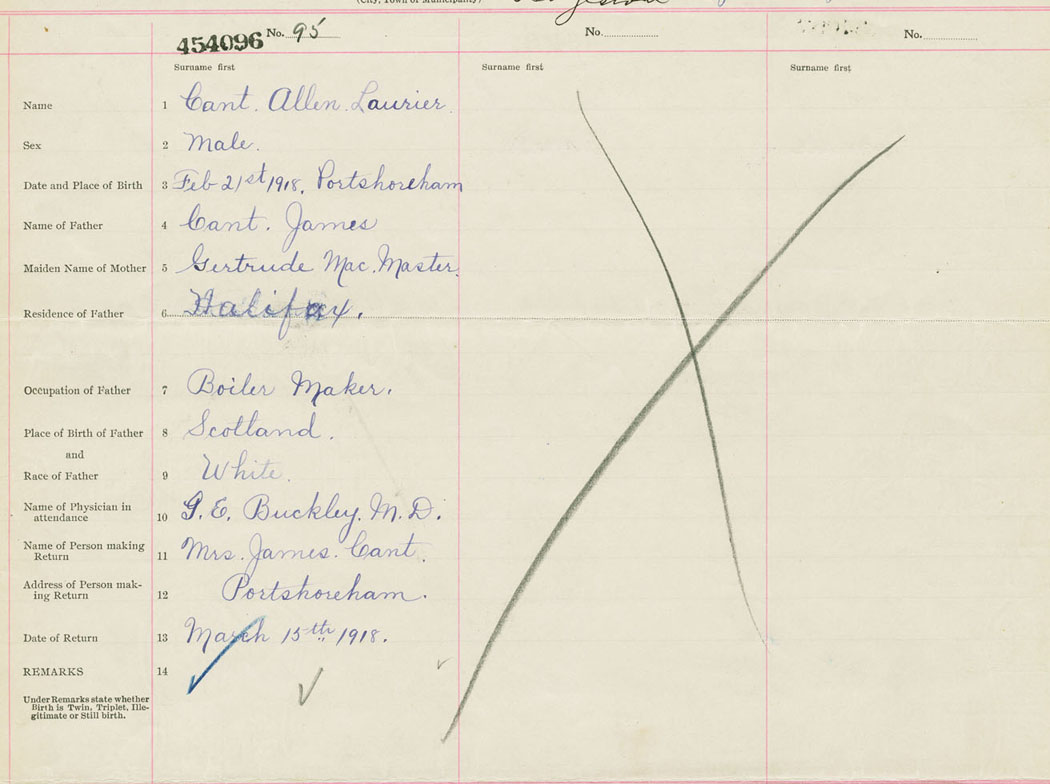 (City, Town or Municipality)
454096 No. 95
No.
No.
Surname first
Surname first
Surname first
Name 1 Cant. Allen. Laurier.
Sex 2 Male.
Date and Place of Birth 3 Feb 21st 1918, Portshoreham
Name of Father 4 Cant. James
Maiden Name of Mother 5 Gertrude Mac. Master.
Residence of Father 6 Halifax.
Occupation of Father 7 Boiler Maker.
Place of Birth of Father 8 Scotland.
and
Race of Father 9 White.
Name of Physician in
attendance 10 G. E. Buckley. M. D.
Name of Person making
Return 11 Mrs. James. Cant.
Address of Person mak-
ing Return 12 Portshoreham.
Date of Return 13 March 15th 1918.
REMARKS 14
Under Remarks state whether
Birth is Twin, Triplet, Ille-
gitimate or Still birth.